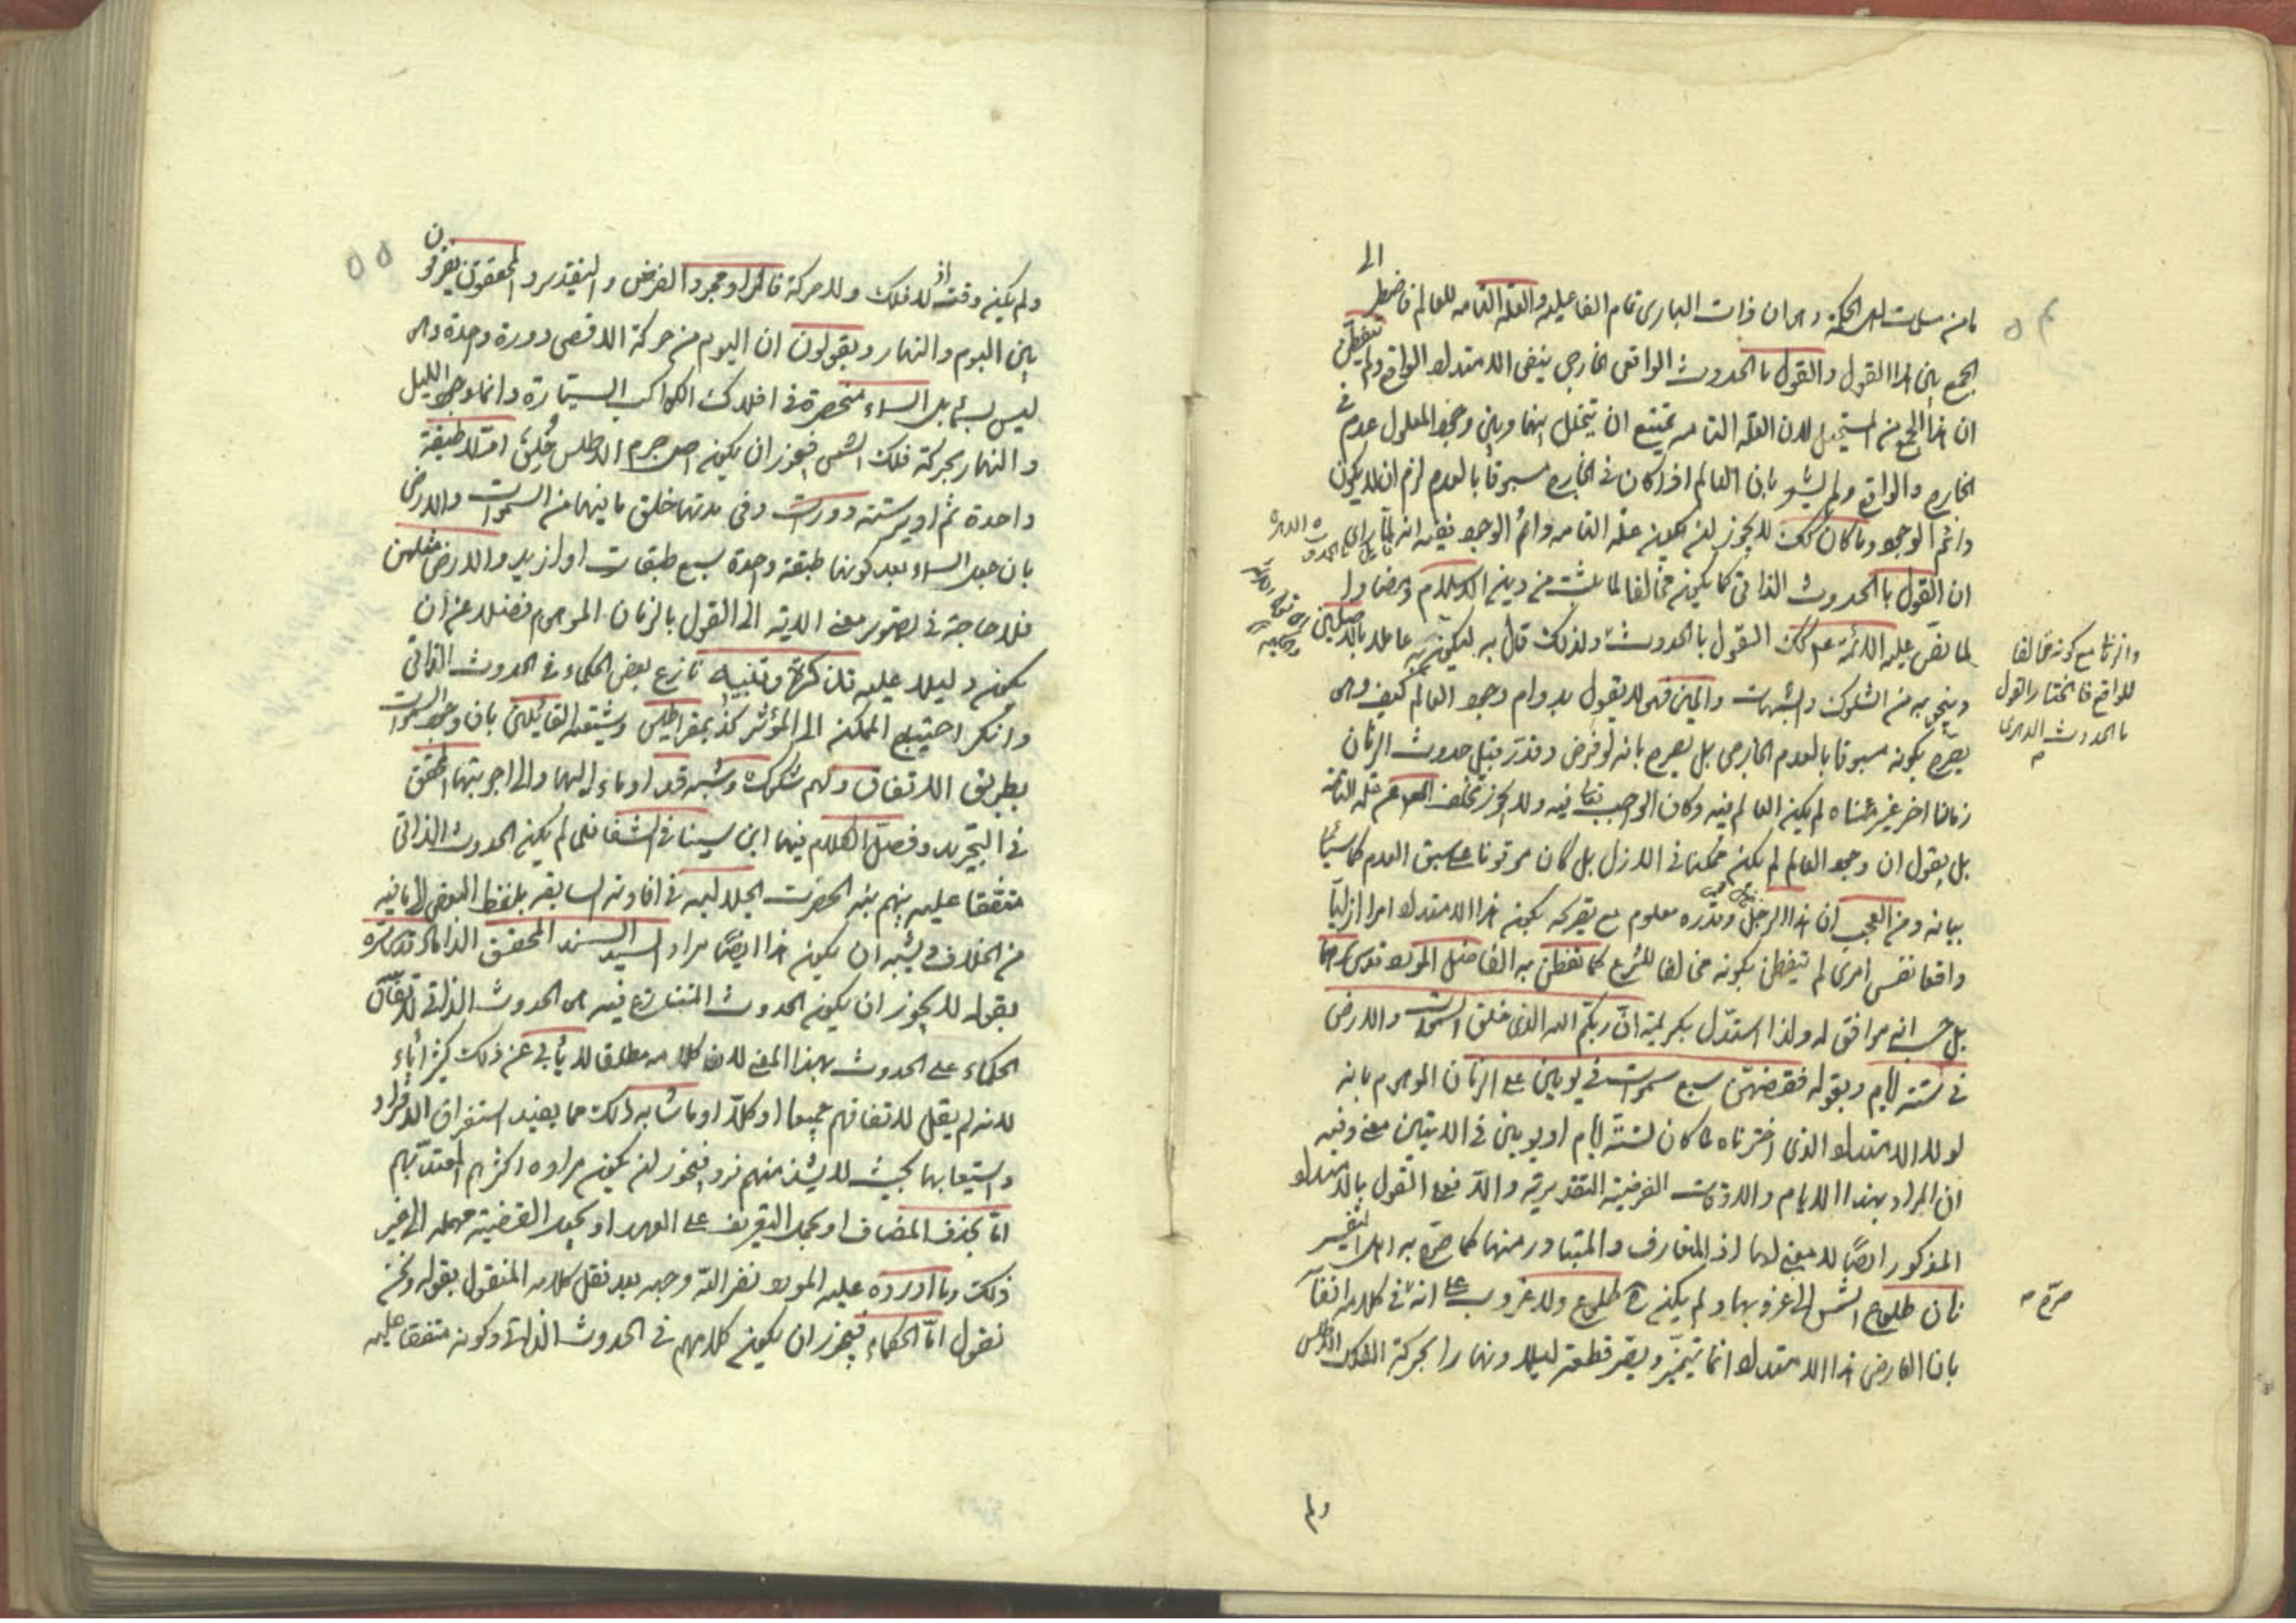 ما من مسلمات اهل الحكمة وهى ان ذات البارى تمام الفاعلية والعلة التامه للعالم فاضطر الى
الجمع بين هذا القول والقول بالحدوث الواقعى الخارجى بنفى الامتداد الواقع ولم يتفطن
ان هذا الجمع من المستحيل لان العلة التامه يمتنع ان يتخلل بينها وبين وجود المعلول عدم فى
الخارج والواقع ولم يشعر بان العالم اذا كان فى الخارج مسبوقا بالعدم لزم ان لا يكون
دائم الوجود وما كان كك لا يجوز ان يكون علة التامه دائم الوجود نعم انه لما راى
ان القول بالحدوث الذاتى كما يكون مخالفا لما ثبت من دين الاسلام
لما نص عليه الائمة ع كك القول بالحدوث ولذلك قال به ليكون عاملا بالاصلين
وينجو به من الشكوك والشبهات والمين فهو لا يقول بدوام وجود العالم كيف وهو
يصرح بكونه مسبوقا بالعدم الخارجى بل يصرح بانه لو فرض وقدر قبل حدوث الزمان
زمانا اخر غير متناه لم يكن العالم فيه وكان الواجب تعالى فيه ولا يجوز تخلف المعلول عن علته التامة
بل يقول ان وجود العالم لم يكن ممكنا فى الازل بل كان موقوفا على سبق العدم كما سياتى
بيانه ومن العجب ان هذا الرجل وقدره معلوم مع تصريحه بكون هذا الامتداد امرا ازليا
واقعا نفس امرى لم يتفطن بكونه مخالفا للشرع كما تفطن به الفاضل المولى قدوسى
بل حسب انه موافق له ولذا استدل بكريمة ان ربكم الله الذى خلق السموات والارض
فى ستة ايام وبقوله فقضيهن سبع سموات فى يومين على الزمان الموهوم بانه
لولا الامتداد الذى اخترناه لما كان لستة ايام او يومين فى الايتين معنى وفيه
ان المراد بهذا الايام والاوقات الفرضية التقديرية والا فمع القول بالامتداد
المذكور ايضا لا معنى لها اذ المتعارف والمتبادر منها كما صرح به اهل التفسير
زمان طلوع الشمس الى غروبها ولم يكن ح طلوع ولا غروب على انه فى كلامه انفا
بان العارض هذا الامتداد انما يتميز ويصير قطعة ليلا ونهارا بحركة الفلك الاطلس
وانزمانا مع كونه مخالفا
للواقع فاختار القول
بالحدوث الدهرى
صرح
ولم
ولم يكن وقتئذ لا فلك ولا حركة فالمراد مجرد الفرض والتقدير والمحققون يفرقون
بين اليوم والنهار ويقولون ان اليوم من حركة الاقصى دورة واحدة وهى
ليس لشئ بل السماء منحصرة فى افلاك الكواكب السيارة وانما وجود الليل
والنهار بحركة فلك الشمس فيجوز ان يكون اصل جرم الاطلس خلق اولا طبقة
واحدة ثم ادير ستة دورات وفى مدتها خلق ما بينهما من السموات والارض
بان جعل السماء بعد كونها طبقة واحدة سبع طبقات او ازيد والارض مثلهن
فلا حاجة فى تصوير معنى الاية الى القول بالزمان الموهوم فضلا عن ان
يكون دليلا عليه تذكرة وتنبيه نازع بعض الحكماء فى الحدوث الذاتى
وانكر احتياج الممكن الى المؤثر كذيمقراطيس وشيعته القائلين بان وجود السموات
بطريق الاتفاق ولهم شكوك وشبه قد اوماء اليها والى اجوبتها المحقق
فى التجريد وفصل الكلام فيها ابن سينا فى الشفا فلما لم يكن الحدوث الذاتى
متفقا عليه بينهم نبه الحضرت الجلاليه فى افادته السابقه بلفظ البعض الى ما فيه
من الخلاف ويشبه ان يكون هذا ايضا مراد السيد السند المحقق الداماد قدس سره
بقوله لا يجوز ان يكون الحدوث المتنازع فيه هو الحدوث الذاتى لاتفاق
الحكماء على الحدوث بهذا المعنى لان كلامه مطلقا لا يأبى عن ذلك كثير اباء
لانه لم يقل لاتفاقهم جميعا او كلا او ما شابه ذلك مما يفيد استغراق الافراد
واستيعابها بحيث لا يشذ منهم فرد فيجوز ان يكون مراده اكثرهم المعتد بهم
اما بحذف المضاف او بحمل التعريف على العهد او بجعل القضية مهمله الى غير
ذلك وما اورده عليه المولى نضر الله وجهه بعد نقل كلامه المنقول بقوله ونحن
نقول اما الحكماء فيجوز ان يكون كلامهم فى الحدوث الذاتى وكونه متفقا عليه